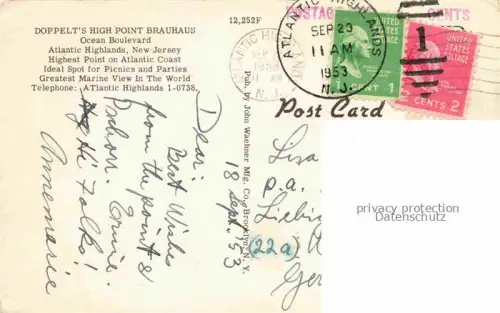 DOPPELT'S HIGH POINT BRAUHAUS
Ocean Boulevard
Atlantic Highlands, New Jersey
Highest Point on Atlantic Coast
Ideal Spot for Picnics and Parties
Greatest Marine View In The World
Telephone: ATlantic Highlands 1-0738.
12,252F
Pub. by John Waehner Mfg. Co., Brooklyn, N. Y.
POSTAG
CENTS
ATLANTIC HIGHLANDS
SEP 23
11 AM
1953
N. J.
1
CENT 1
CENTS 2
Post Card
Dear:
Best Wishes
from the point &
Ernie.
Hi Folks!
Annemarie
18 Sept. 53
Lisa
p.a.
(22a)
Ger
privacy protection
Datenschutz